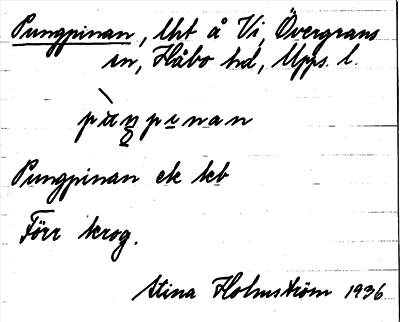 Pungpinan, lht å Vi, Övergrans
sn, Håbo hd, Upps. l.
pùŋpinan
Pungpinan ek kb
Förr krog.
Stina Holmström 1936